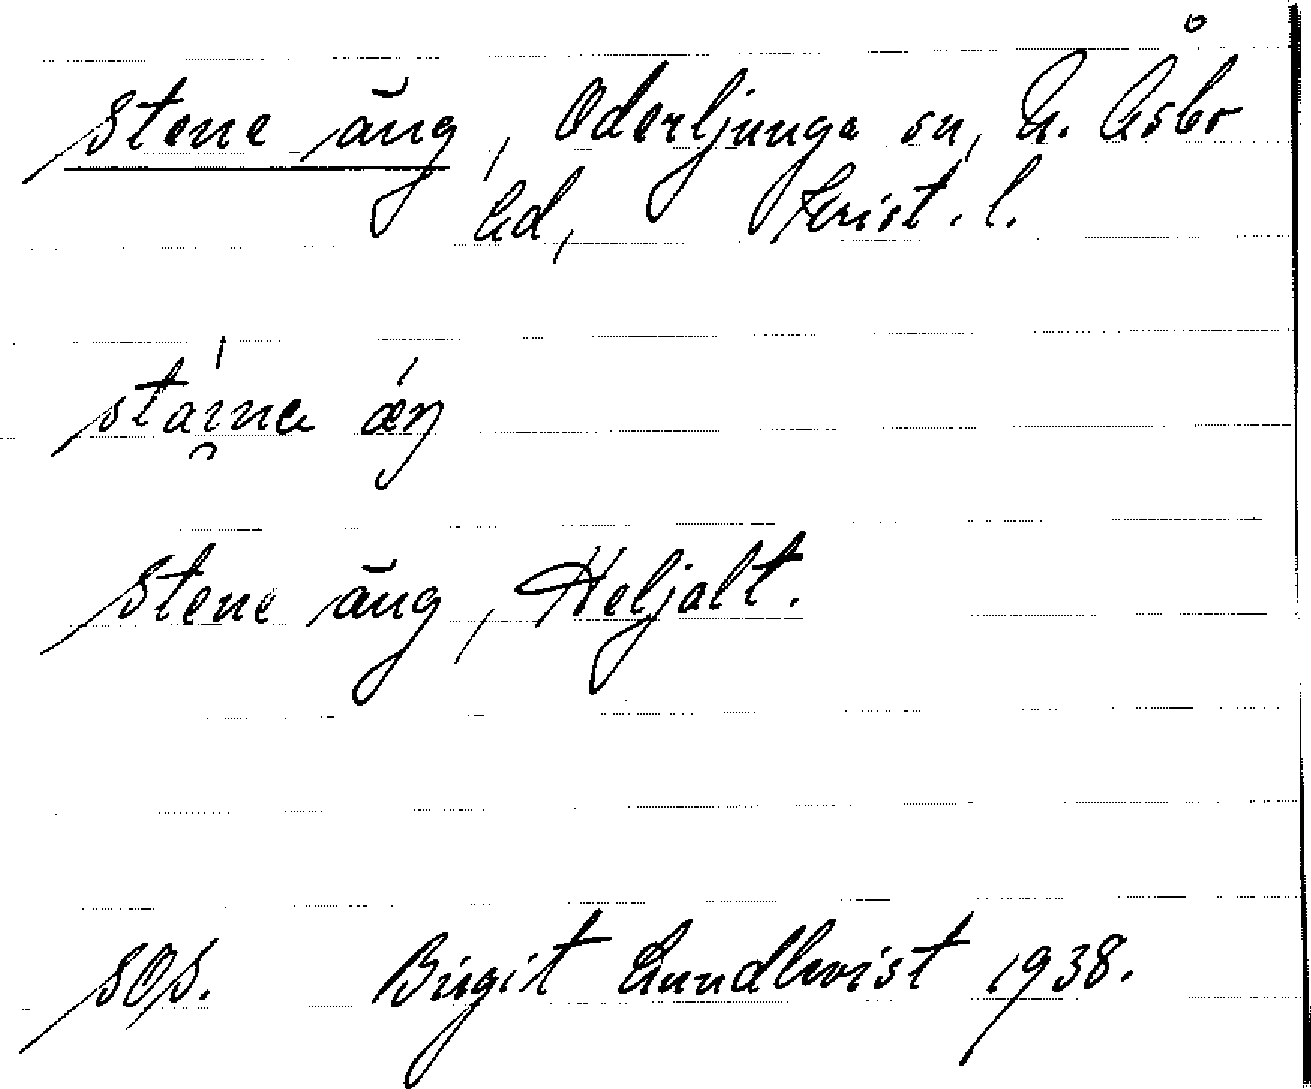 Stene äng, Oderljunga sn, N. Åsbo
hd, Krist. l.
sta̯ı́na ǽŋ
Stene äng, Heljalt.
SOS. Birgit Lundkvist 1938.